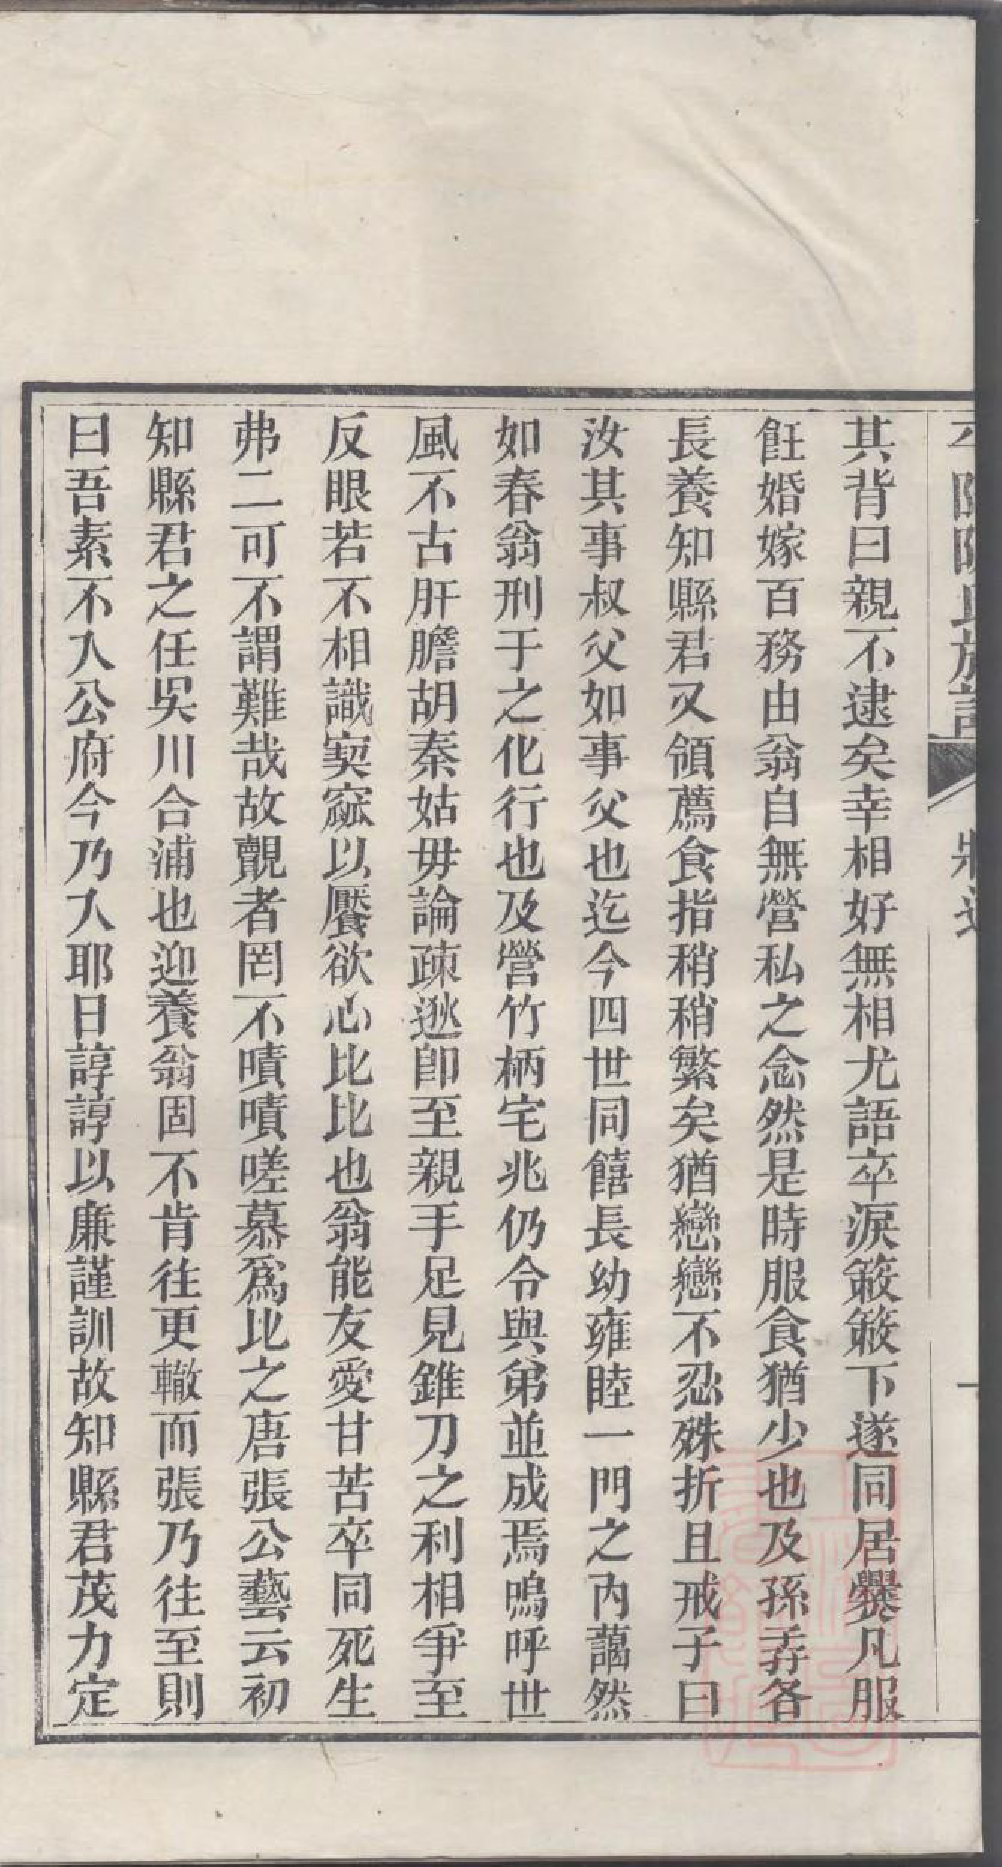 其背曰親不逮矣幸相好無相尤語卒淚簌簌下遂同居爨凡服
飪婚嫁百務由翁自無營私之念然是時服食猶少也及孫弄各
長養知縣君又領薦食指稍稍繁矣猶戀戀不忍殊折且戒子曰
汝其事叔父如事父也迄今四世同饎長幼雍睦一門之內藹然
如春翁刑于之化行也及營竹柄宅兆仍令與弟並成焉嗚呼世
風不古肝膽胡秦姑毋論疎逖卽至親手足見錐刀之利相爭至
反眼若不相識㓶窳以饜欲心比比也翁能友愛甘苦卒同死生
弗二可不謂難哉故覿者罔不嘖嘖嗟慕爲比之唐張公藝云初
知縣君之任吳川合浦也迎養翁固不肯往更轍而張乃往至則
曰吾素不入公府今乃入耶日諄諄以廉謹訓故知縣君茂力定